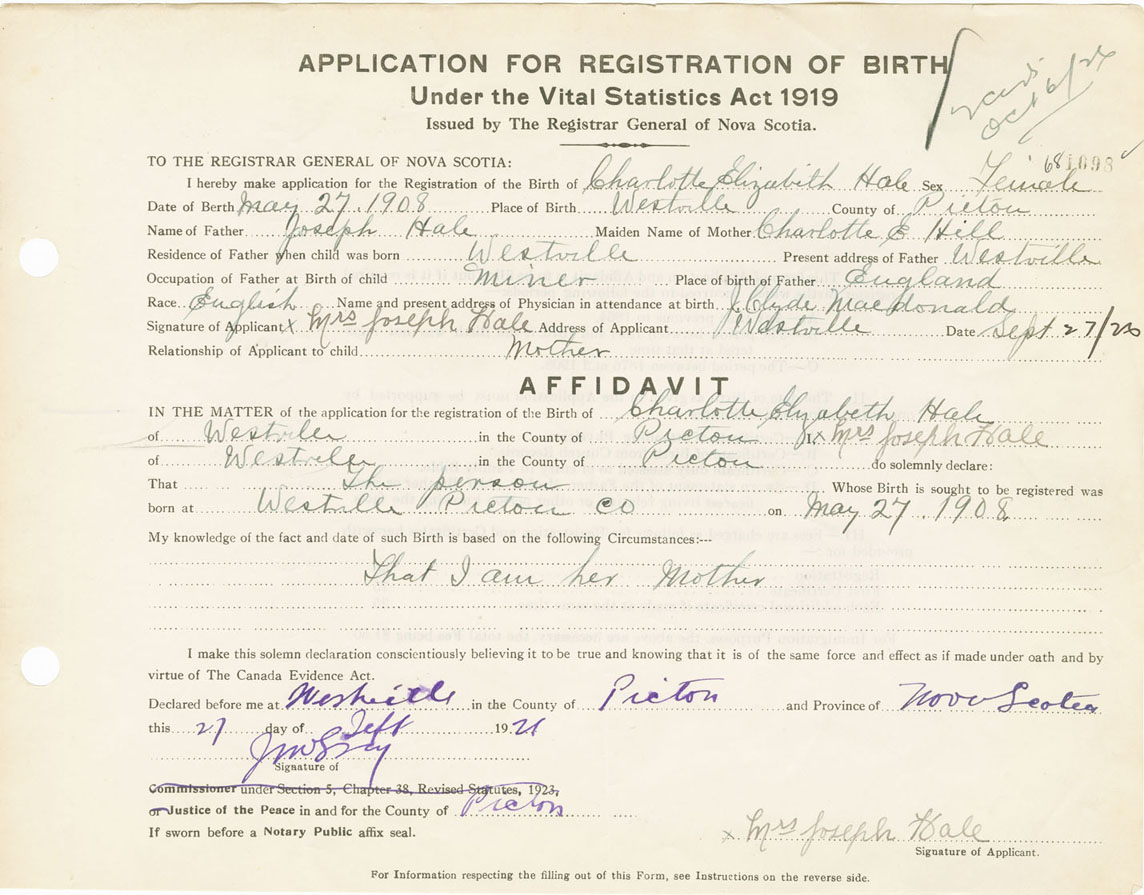 APPLICATION FOR REGISTRATION OF BIRTH
Under the Vital Statistics Act 1919
Issued by The Registrar General of Nova Scotia.
Oct 6/
TO THE REGISTRAR GENERAL OF NOVA SCOTIA: 681098
I hereby make application for the Registration of the Birth of Charlotte Elizabeth Hale Sex Female
Date of Berth May 27, 1908 Place of Birth Westville County of Picton
Name of Father Joseph Hale Maiden Name of Mother Charlotte E Hill
Residence of Father when child was born Westville Present address of Father Westville
Occupation of Father at Birth of child Miner Place of birth of Father England
Race English Name and present address of Physician in attendance at birth J Clyde MacDonald
Signature of Applicant x Mrs Joseph Hale Address of Applicant Westville Date Sept 27/
Relationship of Applicant to child Mother
AFFIDAVIT
IN THE MATTER of the application for the registration of the Birth of Charlotte Elyzabeth Hale
of Westviller in the County of Picton I x Mrs Joseph Hale
of Westviller in the County of Picton do solemnly declare:
That The person Whose Birth is sought to be registered was
born at Westville Picton Co on May 27, 1908
My knowledge of the fact and date of such Birth is based on the following Circumstances:---
That I am her Mother
I make this solemn declaration conscientiously believing it to be true and knowing that it is of the same force and effect as if made under oath and by
virtue of The Canada Evidence Act.
Declared before me at Westville in the County of Picton and Province of Nova Scotia
this 27 day of Sept 19
Signature of
Commissioner under Section 5, Chapter 38, Revised Statutes, 1923,
or Justice of the Peace in and for the County of Picton
If sworn before a Notary Public affix seal.
x Mrs Joseph Hale
Signature of Applicant.
For Information respecting the filling out of this Form, see Instructions on the reverse side.